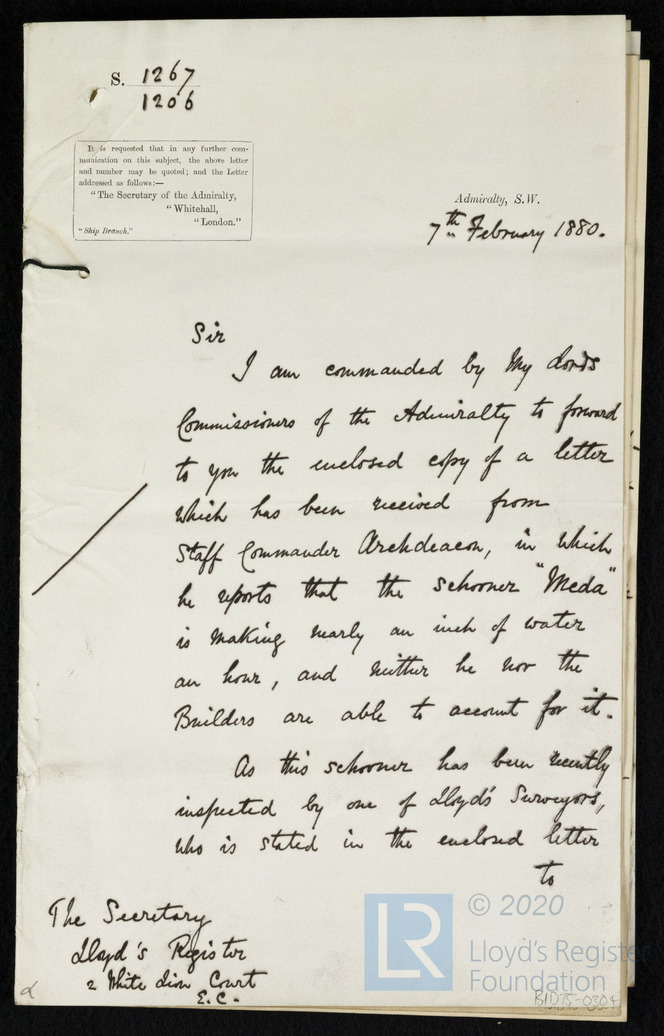 S. 1267
1206
It is requested that in any further com-
munication on this subject, the above letter
and number may be quoted; and the Letter
addressed as follows:—
"The Secretary of the Admiralty,
"Whitehall,
"London."
"Ship Branch."
Admiralty, S.W.
7th February 1880.
Sir
I am commanded by My Lords
Commissioners of the Admiralty to forward
to you the enclosed copy of a letter
which has been received from
Staff Commander Archdeacon, in which
he reports that the schooner "Meda"
is making nearly an inch of water
an hour, and neither he nor the
Builders are able to account for it.
As this schooner has been recently
inspected by one of Lloyd's Surveyors,
who is stated in the enclosed letter
to
The Secretary
Lloyd's Register
2 White Lion Court
E.C.
LR
© 2020
Lloyd's Register
Foundation